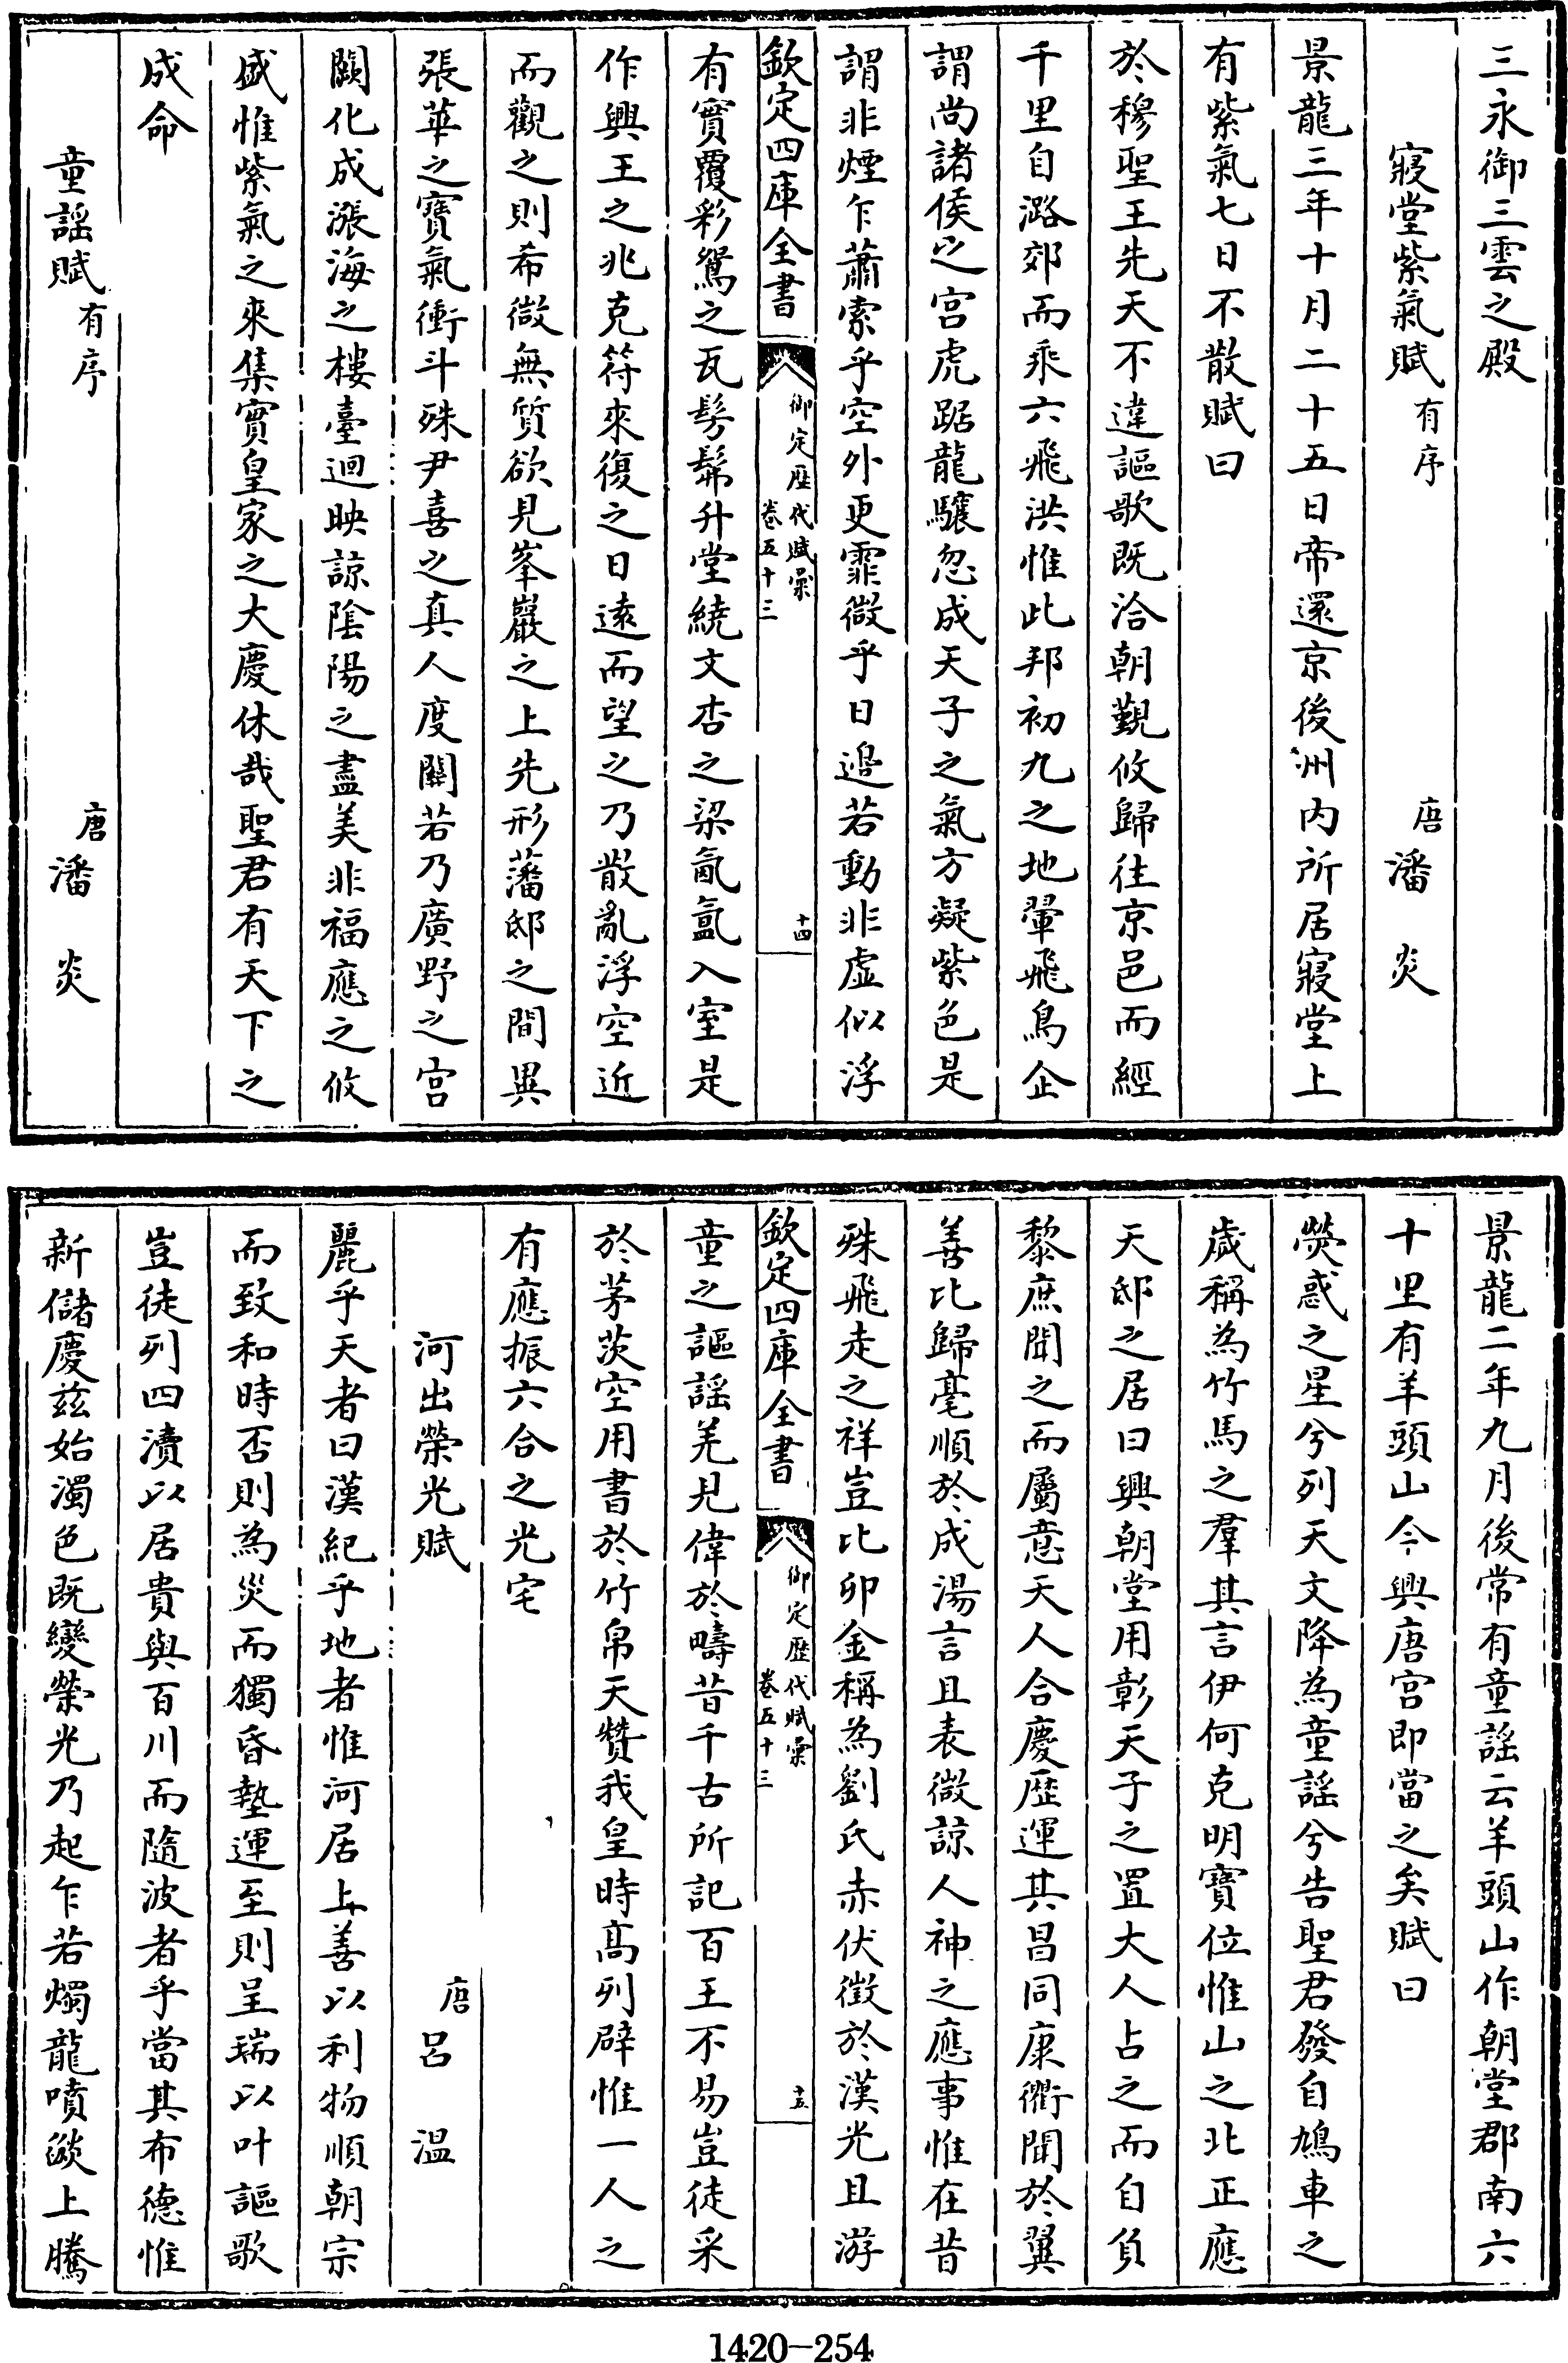 三永御三雲之殿
寢堂紫氣賦有序 唐潘炎
景龍三年十月二十五日帝還京後洲內所居寢堂上
有紫氣七日不散賦曰
於穆聖王先天不違謳歌既洽朝覲攸歸往京邑而經
千里自潞郊而乘六飛洪惟此邦初九之地翬飛鳥企
謂尚諸侯之宮虎踞龍驤忽成天子之氣方凝紫色是
謂非煙乍蕭索乎空外更霏微乎日邉若動非虛似浮
欽定四庫全書 御定歴代賦彙 卷五十三 十四
有實覆彩鴛之瓦髣髴升堂繞文杏之梁氤氳入室是
作興王之兆克符來復之日遠而望之乃散亂浮空近
而觀之則希微無質欲見峯巖之上先形藩邸之間異
張華之寶氣衝斗殊尹喜之真人度關若乃廣野之宮
闕化成漲海之樓臺迴映諒陰陽之盡美非福應之攸
盛惟紫氣之來集實皇家之大慶休哉聖君有天下之
成命
童謡賦有序 唐潘炎
景龍二年九月後常有童謡云羊頭山作朝堂郡南六
十里有羊頭山今興唐宮即當之矣賦曰
熒惑之星兮列天文降為童謡兮告聖君發自鳩車之
歲稱為竹馬之羣其言伊何克明寶位惟山之北正應
天邸之居曰興朝堂用彰天子之置大人占之而自負
黎庶聞之而屬意天人合慶歴運其昌同康衢聞於翼
善比歸亳順於成湯言且表微諒人神之應事惟在昔
殊飛走之祥豈比卯金稱為劉氏赤伏徵於漢光且游
欽定四庫全書 御定歴代賦彙 卷五十三 十五
童之謳謡羌見偉於疇昔千古所記百王不易豈徒采
於茅茨空用書於竹帛天贊我皇時髙列辟惟一人之
有應振六合之光宅
河出榮光賦 唐呂溫
麗乎天者曰漢紀乎地者惟河居上善以利物順朝宗
而致和時否則為災而獨昏墊運至則呈瑞以叶謳歌
豈徒列四瀆以居貴與百川而隨波者乎當其布德惟
新儲慶兹始濁色既變榮光乃起乍若燭龍噴燄上騰
1420-254